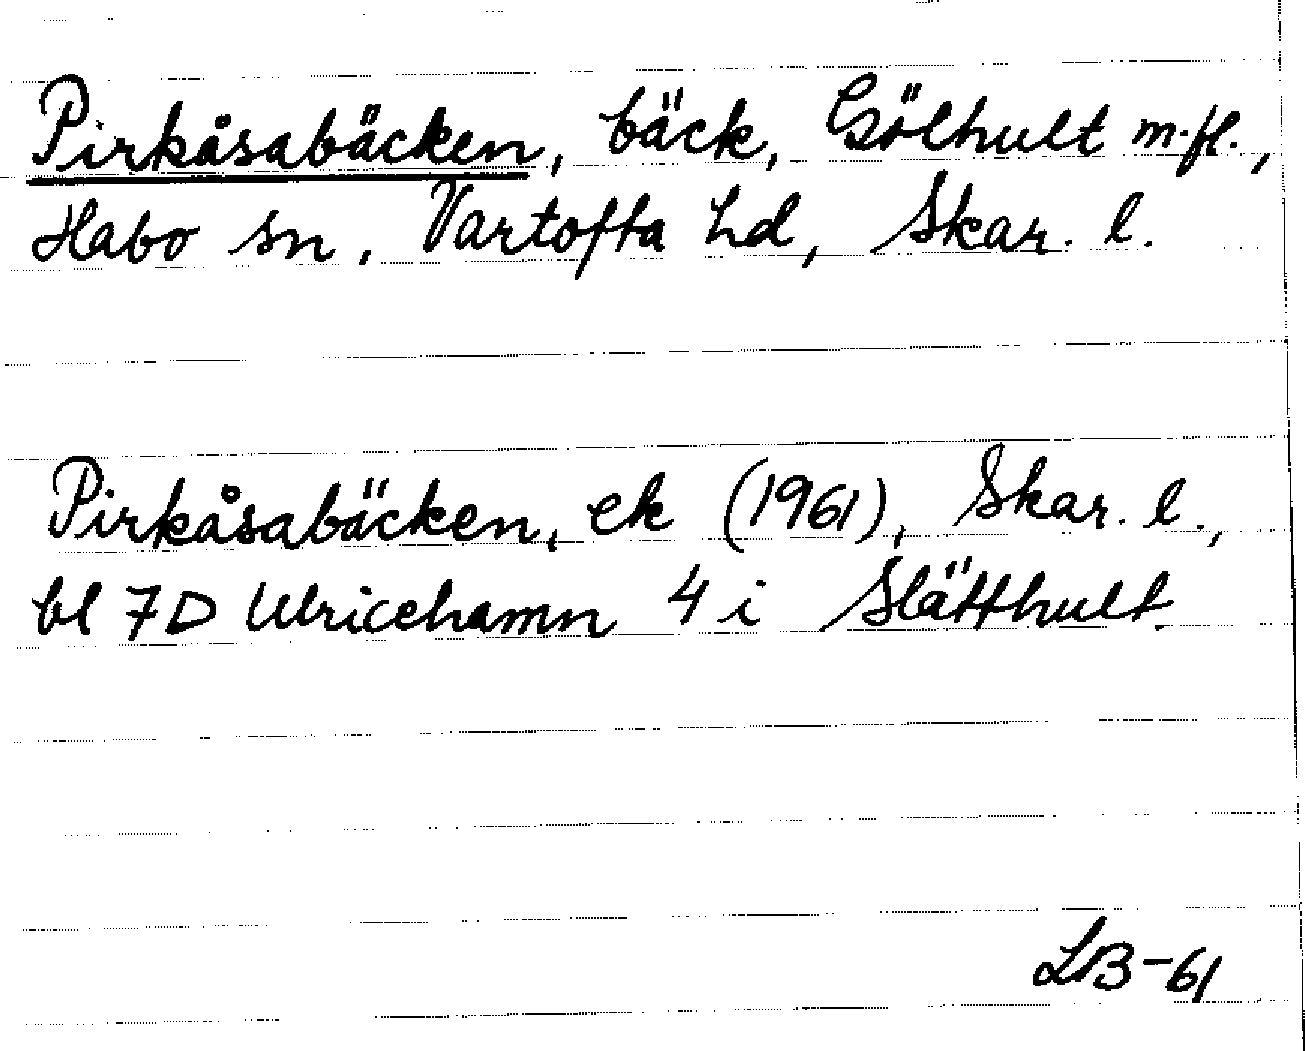 Pirkåsabäcken, bäck, Gölhult m.fl.,
Habo sn, Vartofta hd, Skar. l.
Pirkåsabäcken, ek (1961), Skar. l.,
bl 7D Ulricehamn 4 i Slätthult.
LB-61